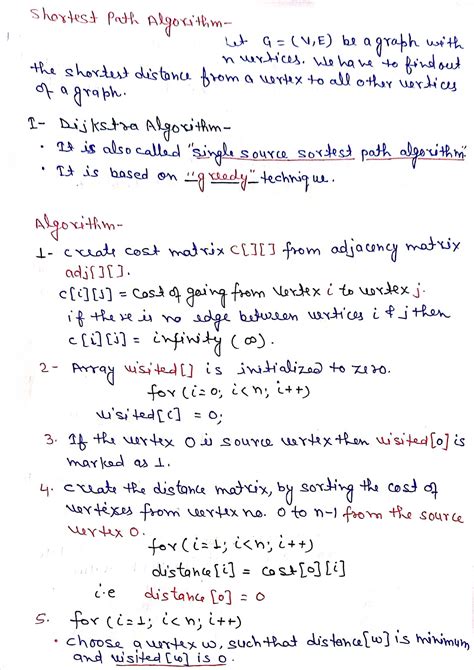 Shortest Path Algorithm-
Let G = (V,E) be a graph with
n vertices. We have to find out
the shortest distance from a vertex to all other vertices
of a graph.
I- Dijkstra Algorithm-
• It is also called "single source sortest path algorithm"
• It is based on "greedy" technique.
Algorithm-
1- create cost matrix C[][] from adjacency matrix
adj[][].
c[i][j] = cost of going from vertex i to vertex j.
if there is no edge between vertices i & j then
c[i][j] = infinity (∞).
2- Array visited[] is initialized to zero.
for(i=0; i<n; i++)
visited[i] = 0;
3. If the vertex 0 is source vertex then visited[0] is
marked as 1.
4. create the distance matrix, by sorting the cost of
vertexes from vertex no. 0 to n-1 from the source
vertex 0.
for(i=1; i<n; i++)
distance[i] = cost[0][i]
i.e distance[0] = 0
5. for(i=1; i<n; i++)
• choose a vertex w, such that distance[w] is minimum
and visited[w] is 0.